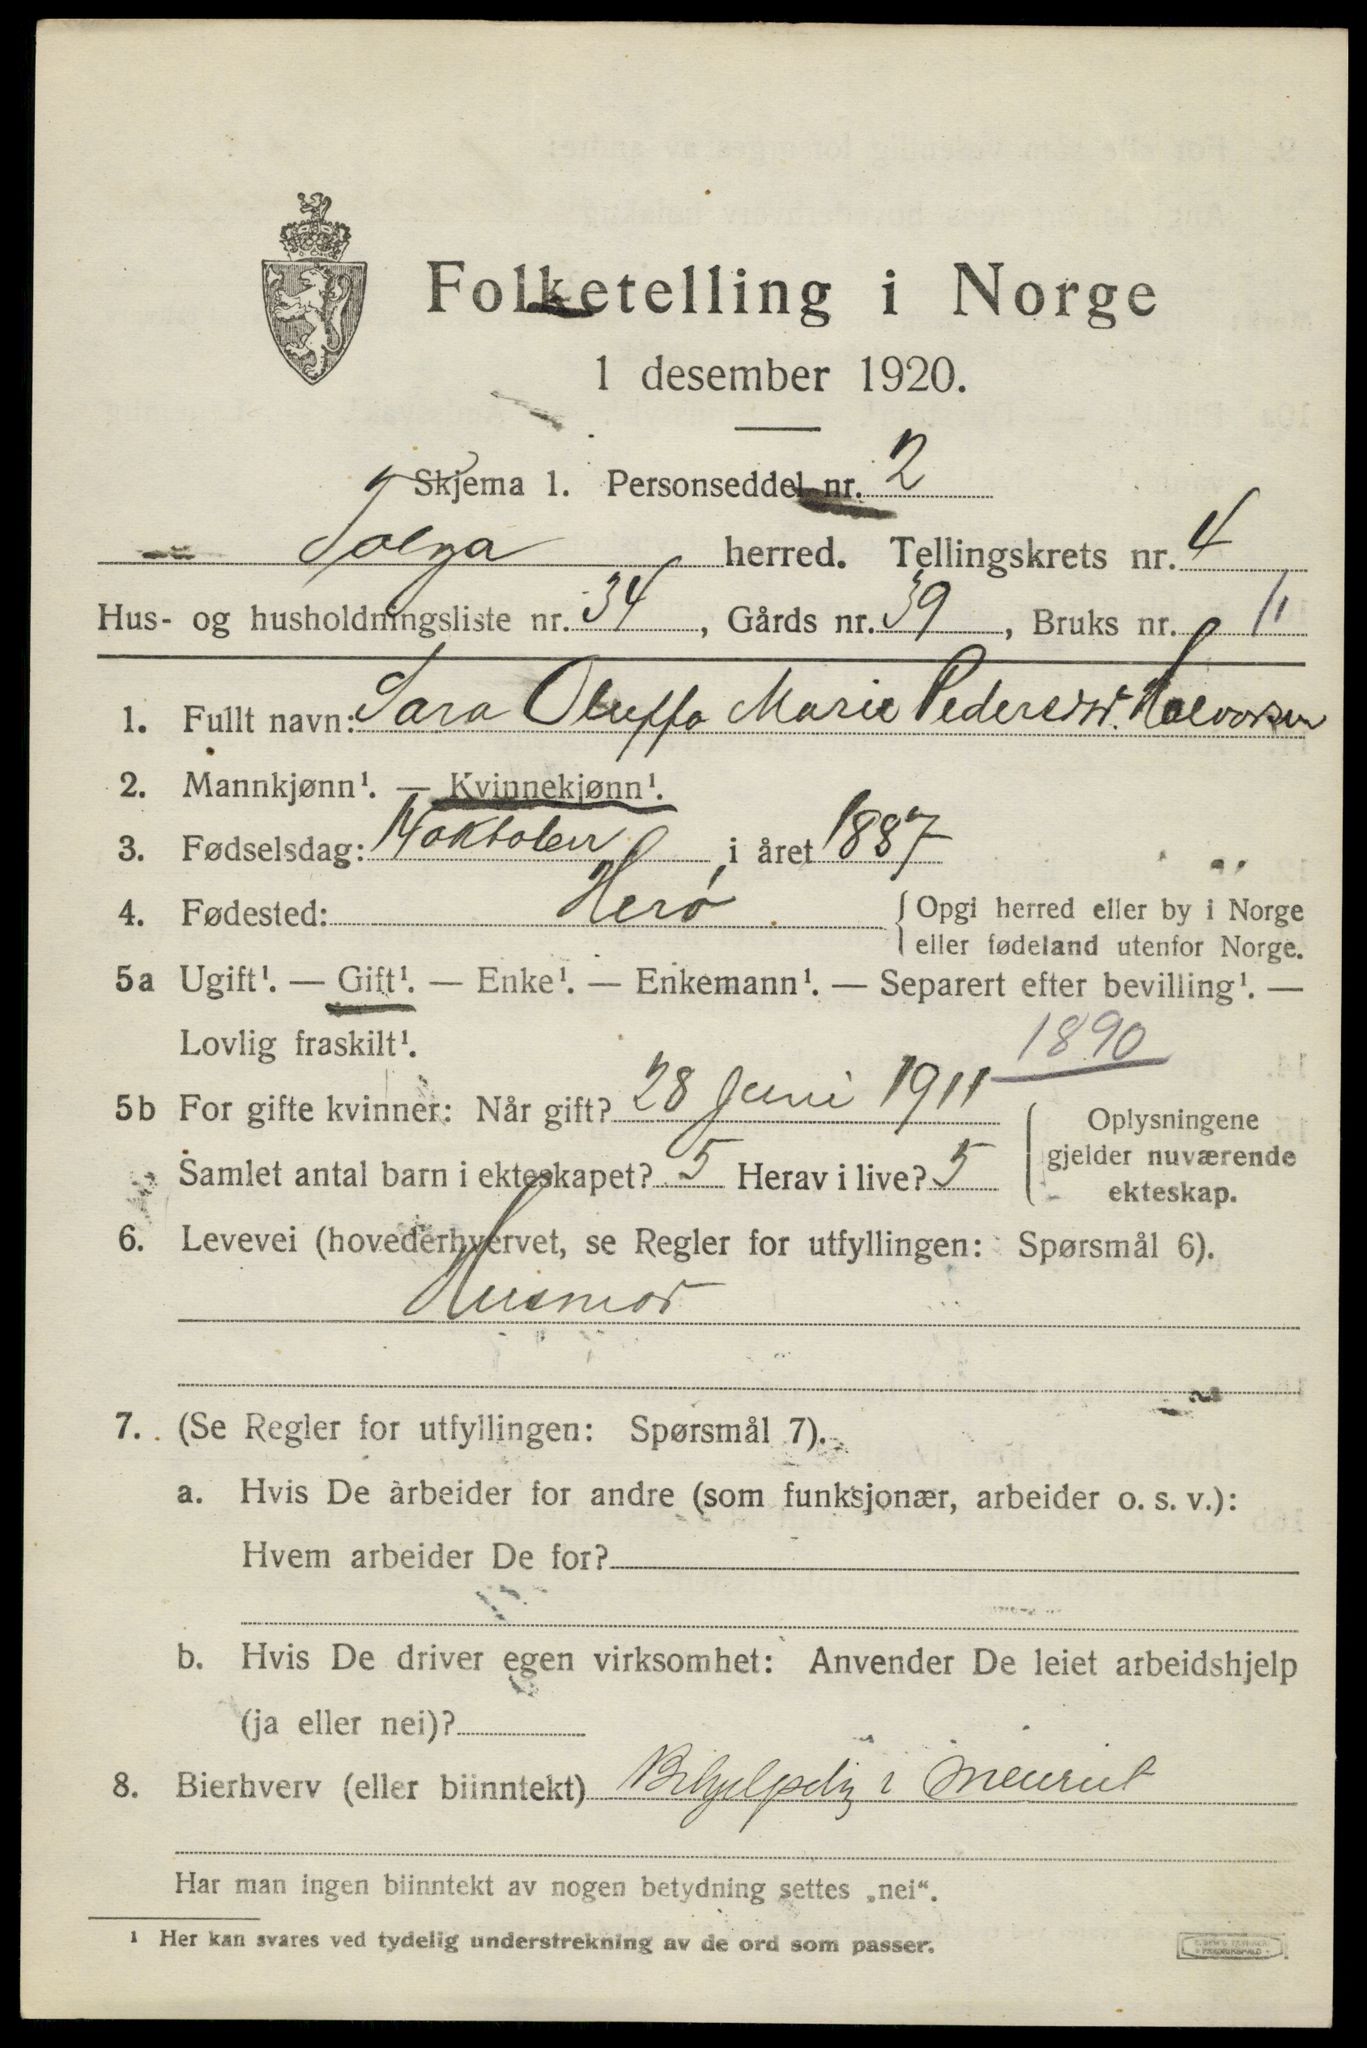 Folketelling i Norge
1 desember 1920.
Skjema 1. Personseddel nr. 2
Tolga herred. Tellingskrets nr. 4
Hus- og husholdningsliste nr. 34, Gårds nr. 39, Bruks nr. 11
1. Fullt navn: Sara Oluffa Marie Pedersdr. Halvorsen
2. Mannkjønn¹. — Kvinnekjønn¹.
3. Fødselsdag: 14 oktober i året 1887
4. Fødested: Herø { Opgi herred eller by i Norge
eller fødeland utenfor Norge.
5a Ugift¹. — Gift¹. — Enke¹. — Enkemann¹. — Separert efter bevilling¹. —
Lovlig fraskilt¹.
1890
5b For gifte kvinner: Når gift? 28 Juni 1911
Samlet antal barn i ekteskapet? 5 Herav i live? 5
Oplysningene
gjelder nuværende
ekteskap.
6. Levevei (hovederhvervet, se Regler for utfyllingen: Spørsmål 6).
Husmor
7. (Se Regler for utfyllingen: Spørsmål 7).
a. Hvis De arbeider for andre (som funksjonær, arbeider o. s. v.):
Hvem arbeider De for?
b. Hvis De driver egen virksomhet: Anvender De leiet arbeidshjelp
(ja eller nei)?
8. Bierhverv (eller biinntekt) i
Har man ingen biinntekt av nogen betydning settes „nei“.
¹ Her kan svares ved tydelig understrekning av de ord som passer.